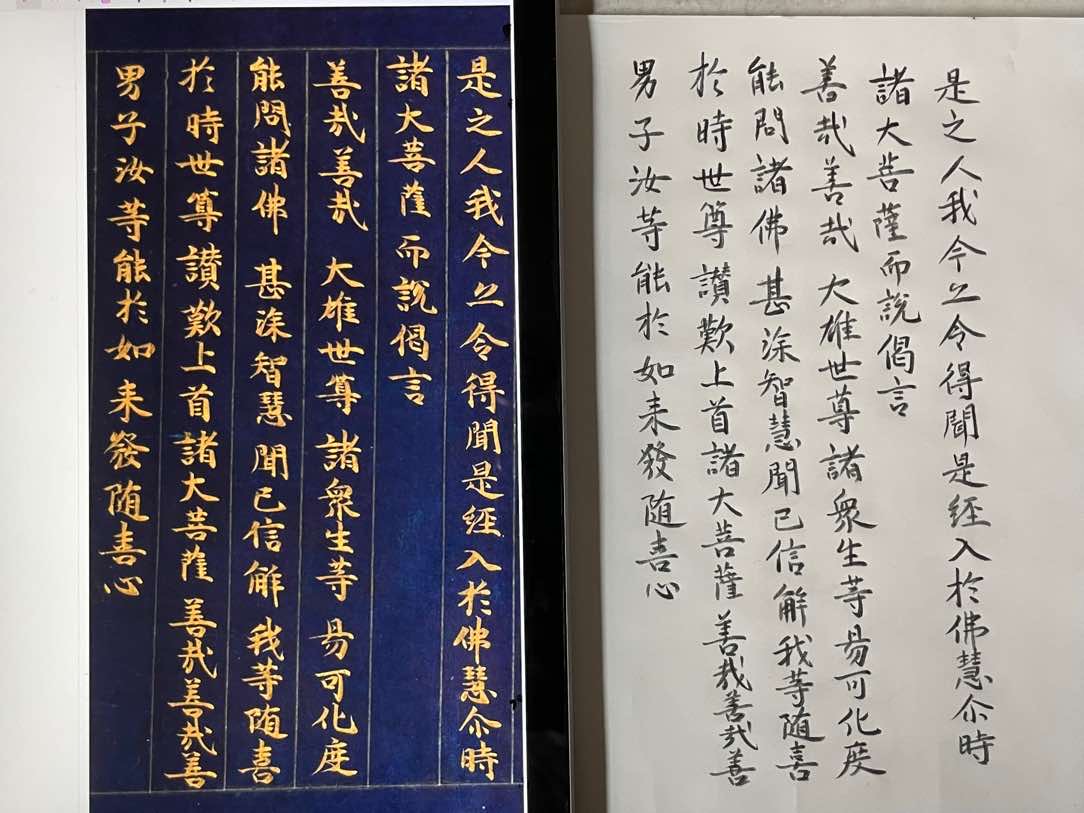 是之人我今亦令得聞是經入於佛慧尒時
諸大菩薩而說偈言
善哉善哉 大雄世尊 諸衆生等 易可化度
能問諸佛 甚深智慧 聞已信解 我等随喜
於時世尊讃歎上首諸大菩薩 善哉善哉善
男子汝等能於如来發随喜心
是之人我今亦令得聞是經入於佛慧尒時
諸大菩薩而說偈言
善哉善哉 大雄世尊諸衆生等易可化度
能問諸佛 甚深智慧聞已信解我等随喜
於時世尊讃歎上首諸大菩薩善哉善哉善
男子汝等能於如来發随喜心